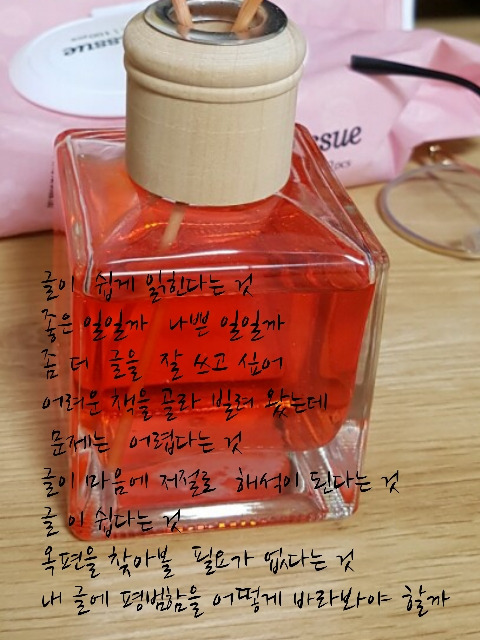 Tissue
1,100pcs
Tissue
글이 쉽게 읽힌다는 것
좋은 일일까 나쁜 일일까
좀 더 글을 잘 쓰고 싶어
어려운 책을 골라 빌려 왔는데
문제는 어렵다는 것
글이 마음에 저절로 해석이 된다는 것
글이 쉽다는 것
옥편을 찾아볼 필요가 없다는 것
내 글에 평범함을 어떻게 바라봐야 할까